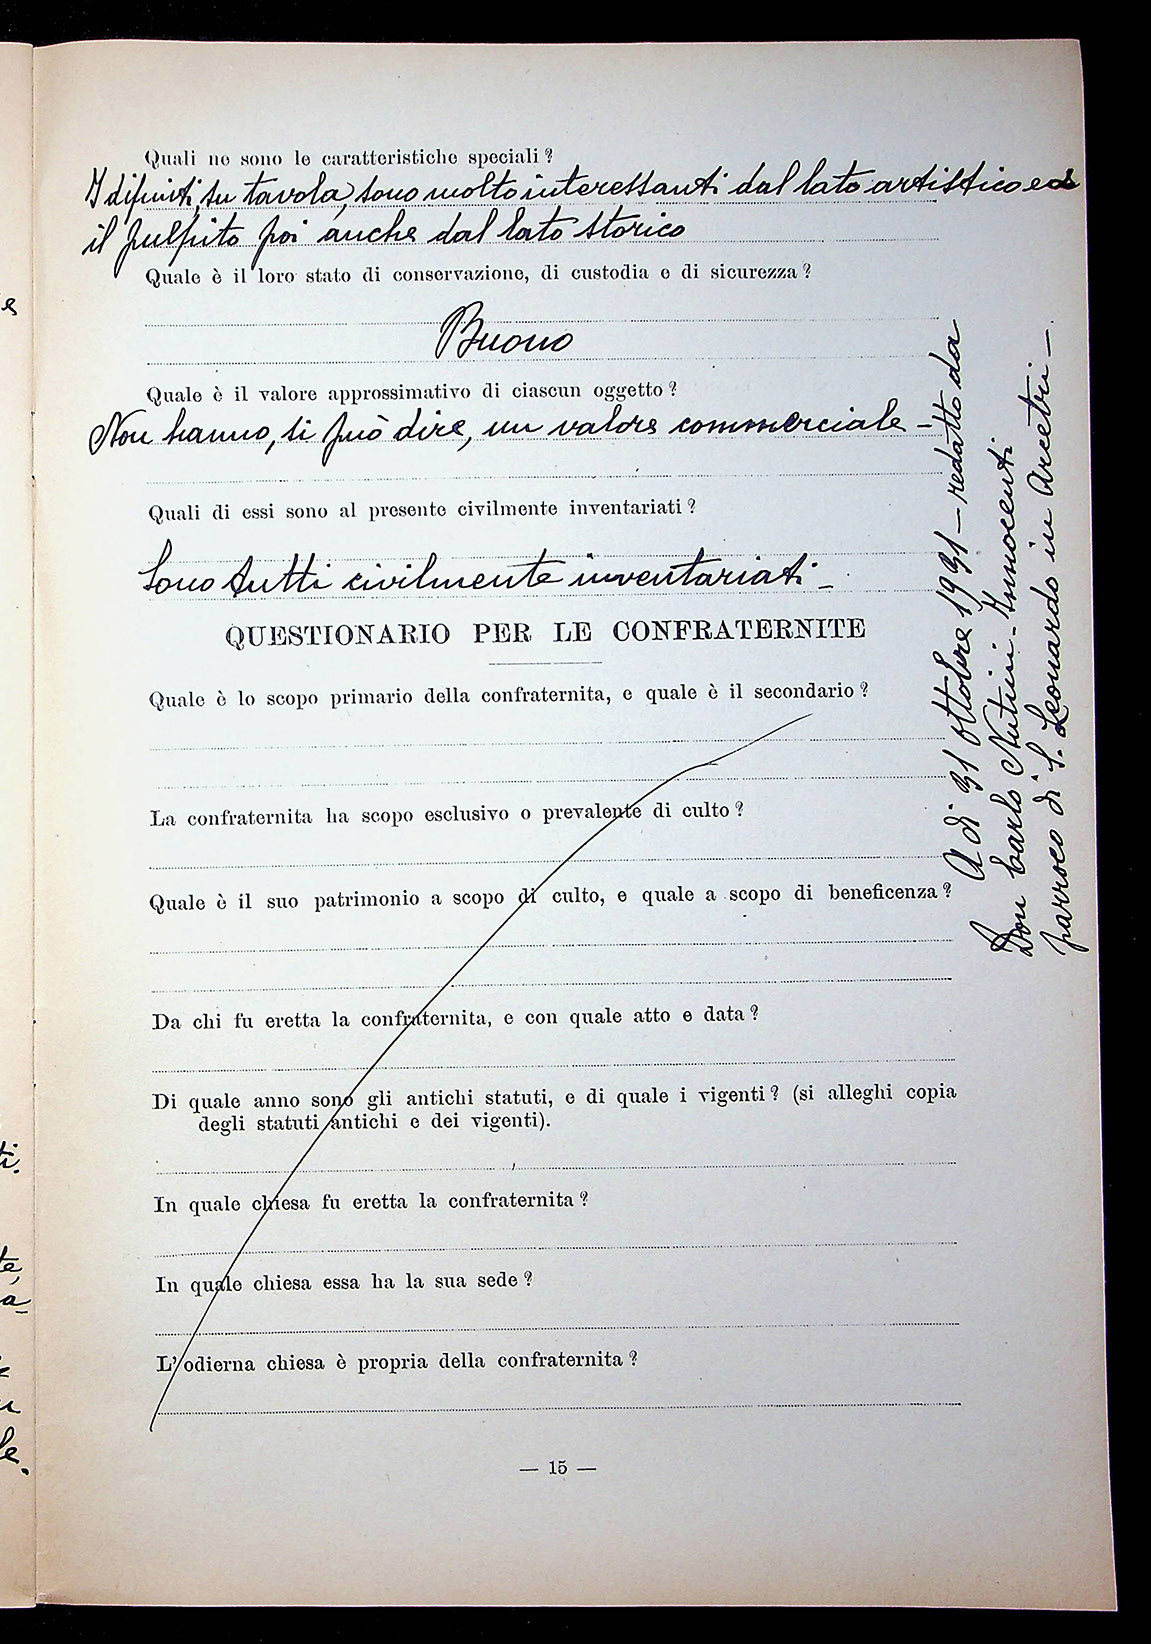 Quali ne sono le caratteristiche speciali ?
I dipinti, su tavola, sono molto interessanti dal lato artistico ed
il pulpito poi anche dal lato storico
Quale è il loro stato di conservazione, di custodia e di sicurezza ?
Buono
Quale è il valore approssimativo di ciascun oggetto ?
Non hanno, si può dire, un valore commerciale -
Quali di essi sono al presente civilmente inventariati ?
Sono tutti civilmente inventariati -
QUESTIONARIO PER LE CONFRATERNITE
Quale è lo scopo primario della confraternita, e quale è il secondario ?
La confraternita ha scopo esclusivo o prevalente di culto ?
Quale è il suo patrimonio a scopo di culto, e quale a scopo di beneficenza ?
Da chi fu eretta la confraternita, e con quale atto e data ?
Di quale anno sono gli antichi statuti, e di quale i vigenti ? (si alleghi copia
degli statuti antichi e dei vigenti).
In quale chiesa fu eretta la confraternita ?
In quale chiesa essa ha la sua sede ?
L'odierna chiesa è propria della confraternita ?
— 15 —
A dì 31 ottobre 1931 - redatto da
Don Carlo Nutini - Innocenti
parroco di S. Leonardo in Arcetri -